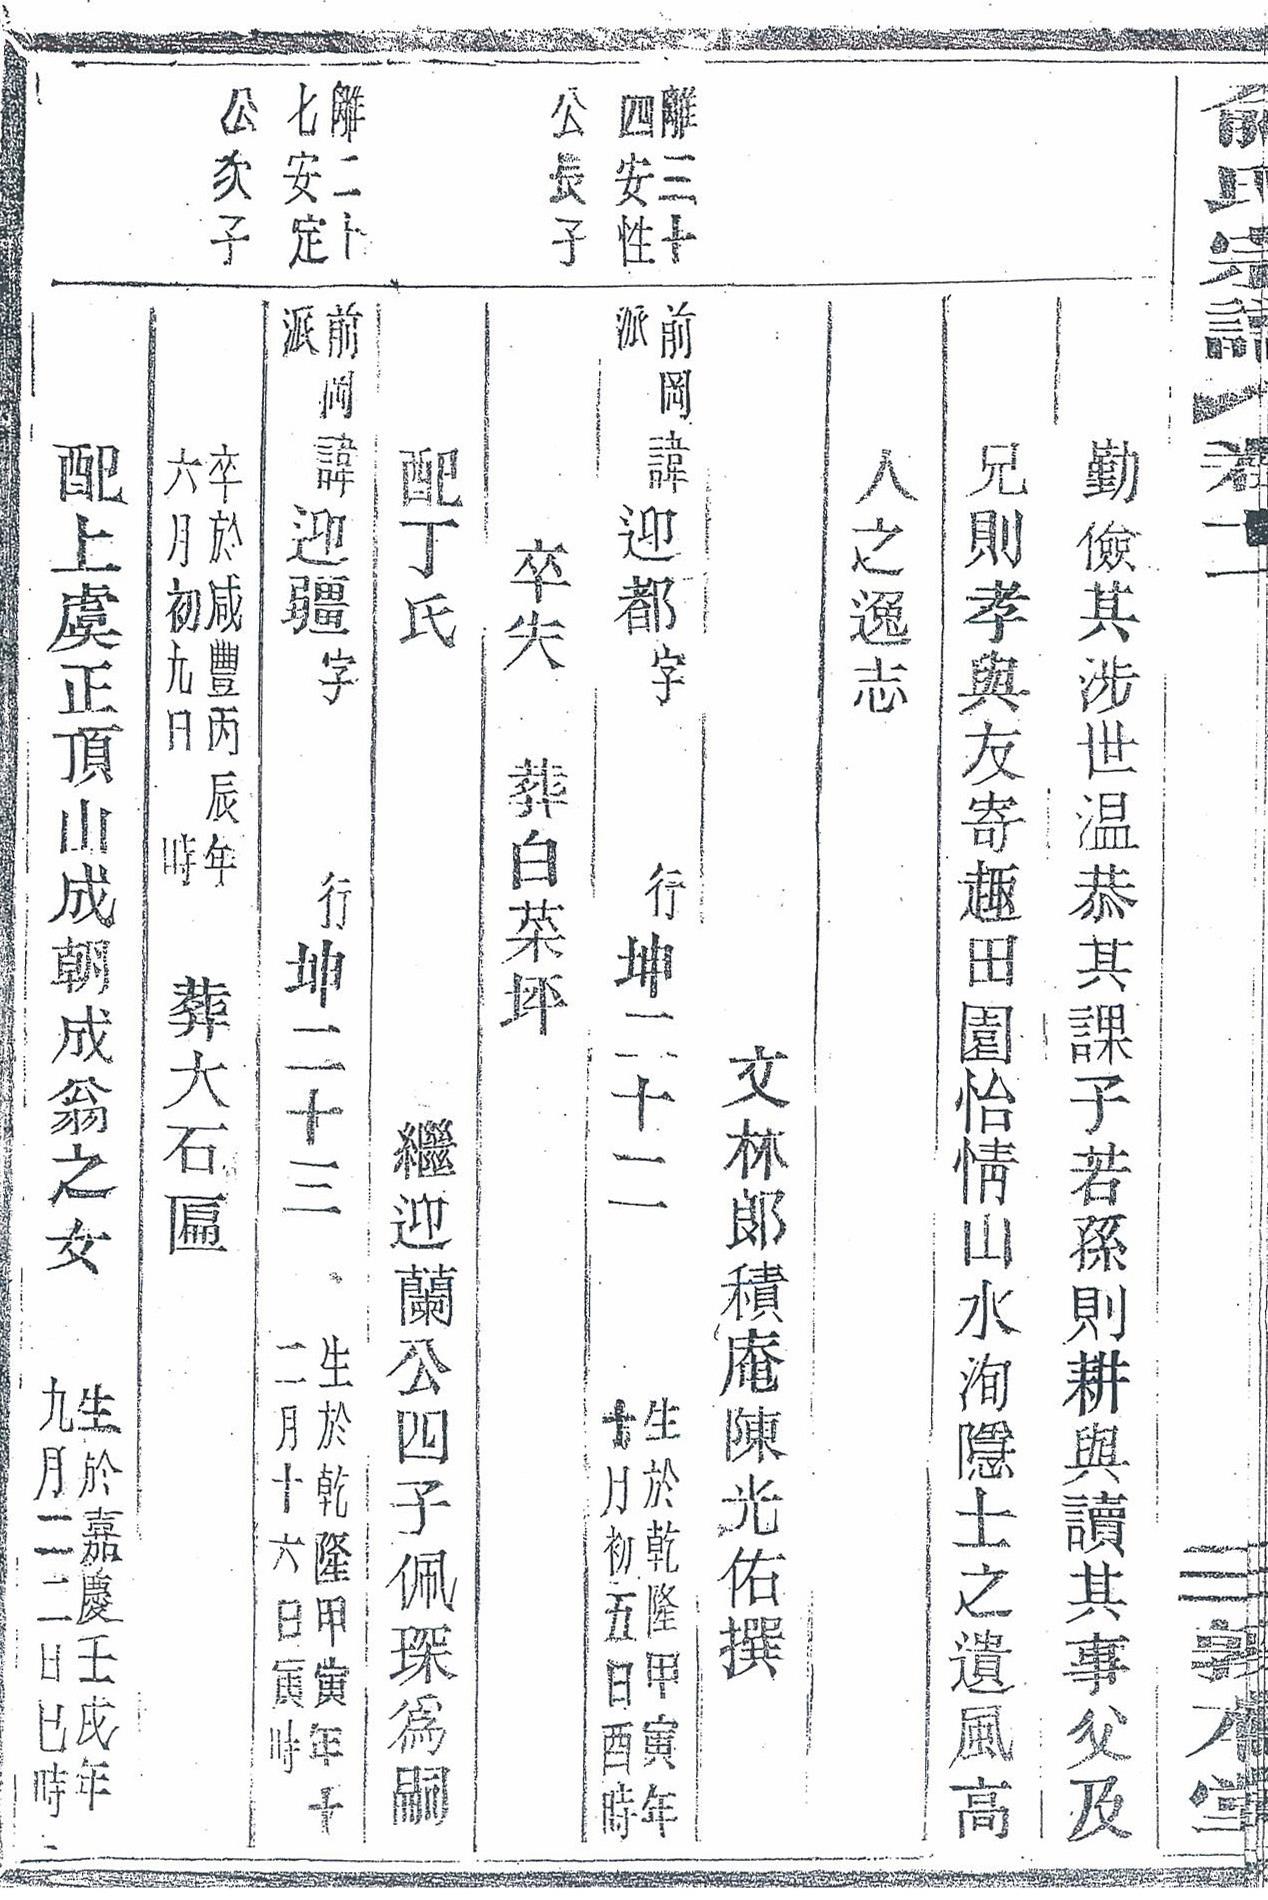 俞氏宗譜 卷二 三 敦本堂
勤儉其涉世温恭其課子若孫則耕與讀其事父及
兄則孝與友寄趣田園怡情山水洵隱士之遺風高
人之逸志
文林郎積庵陳光佑撰
離三十
四安性
公長子
前岡
派
諱迎都字 行坤二十二
生於乾隆甲寅年
十月初五日酉時
卒失 葬白菜坪
配丁氏 繼迎蘭公四子佩琛為嗣
離二十
七安定
公次子
前岡
派
諱迎疆字 行坤二十三
生於乾隆甲寅年十
二月十六日寅時
卒於咸豐丙辰年
六月初九日 時
葬大石匾
配上虞正頂山成朝成翁之女
生於嘉慶壬戌年
九月二二日巳時